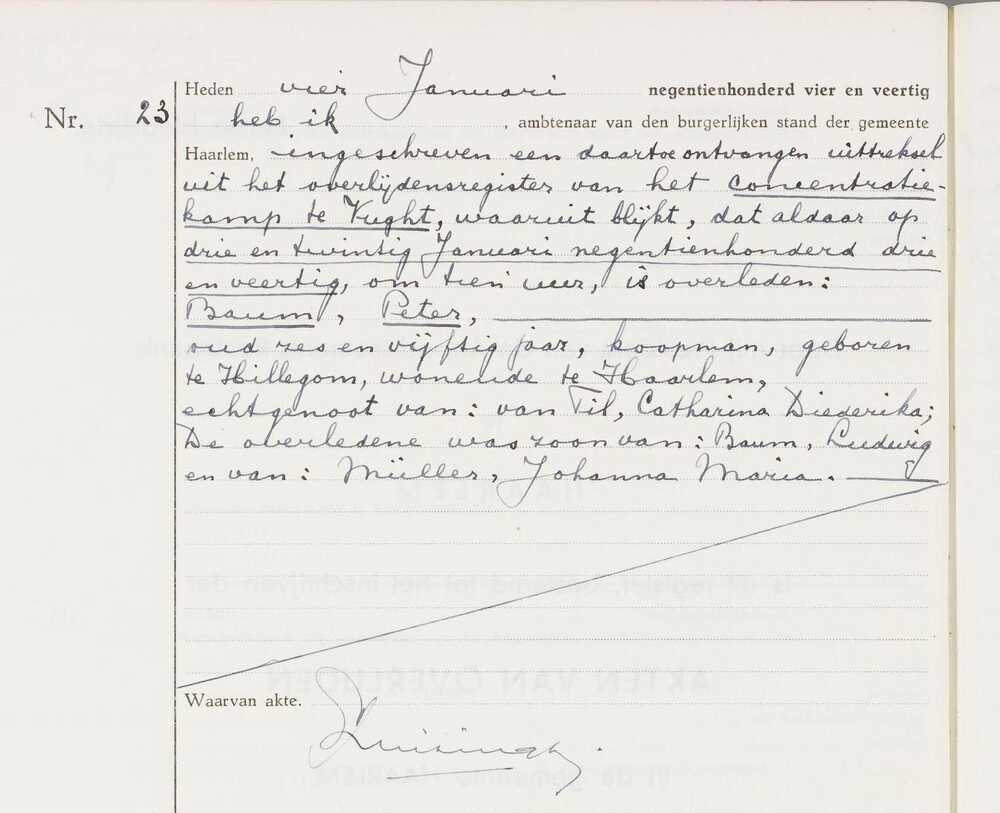 Nr. 23
Heden vier Januari negentienhonderd vier en veertig
heb ik , ambtenaar van den burgerlijken stand der gemeente
Haarlem, ingeschreven een daartoe ontvangen uittreksel
uit het overlijdensregister van het concentratie-
kamp te Vught, waaruit blijkt, dat aldaar op
drie en twintig Januari negentienhonderd drie
en veertig, om tien uur, is overleden:
Baum, Peter,
oud zes en vijftig jaar, koopman, geboren
te Hillegom, wonende te Haarlem,
echtgenoot van: van Til, Catharina Diederika;
De overledene was zoon van: Baum, Ludwig
en van: Müller, Johanna Maria.
Waarvan akte.